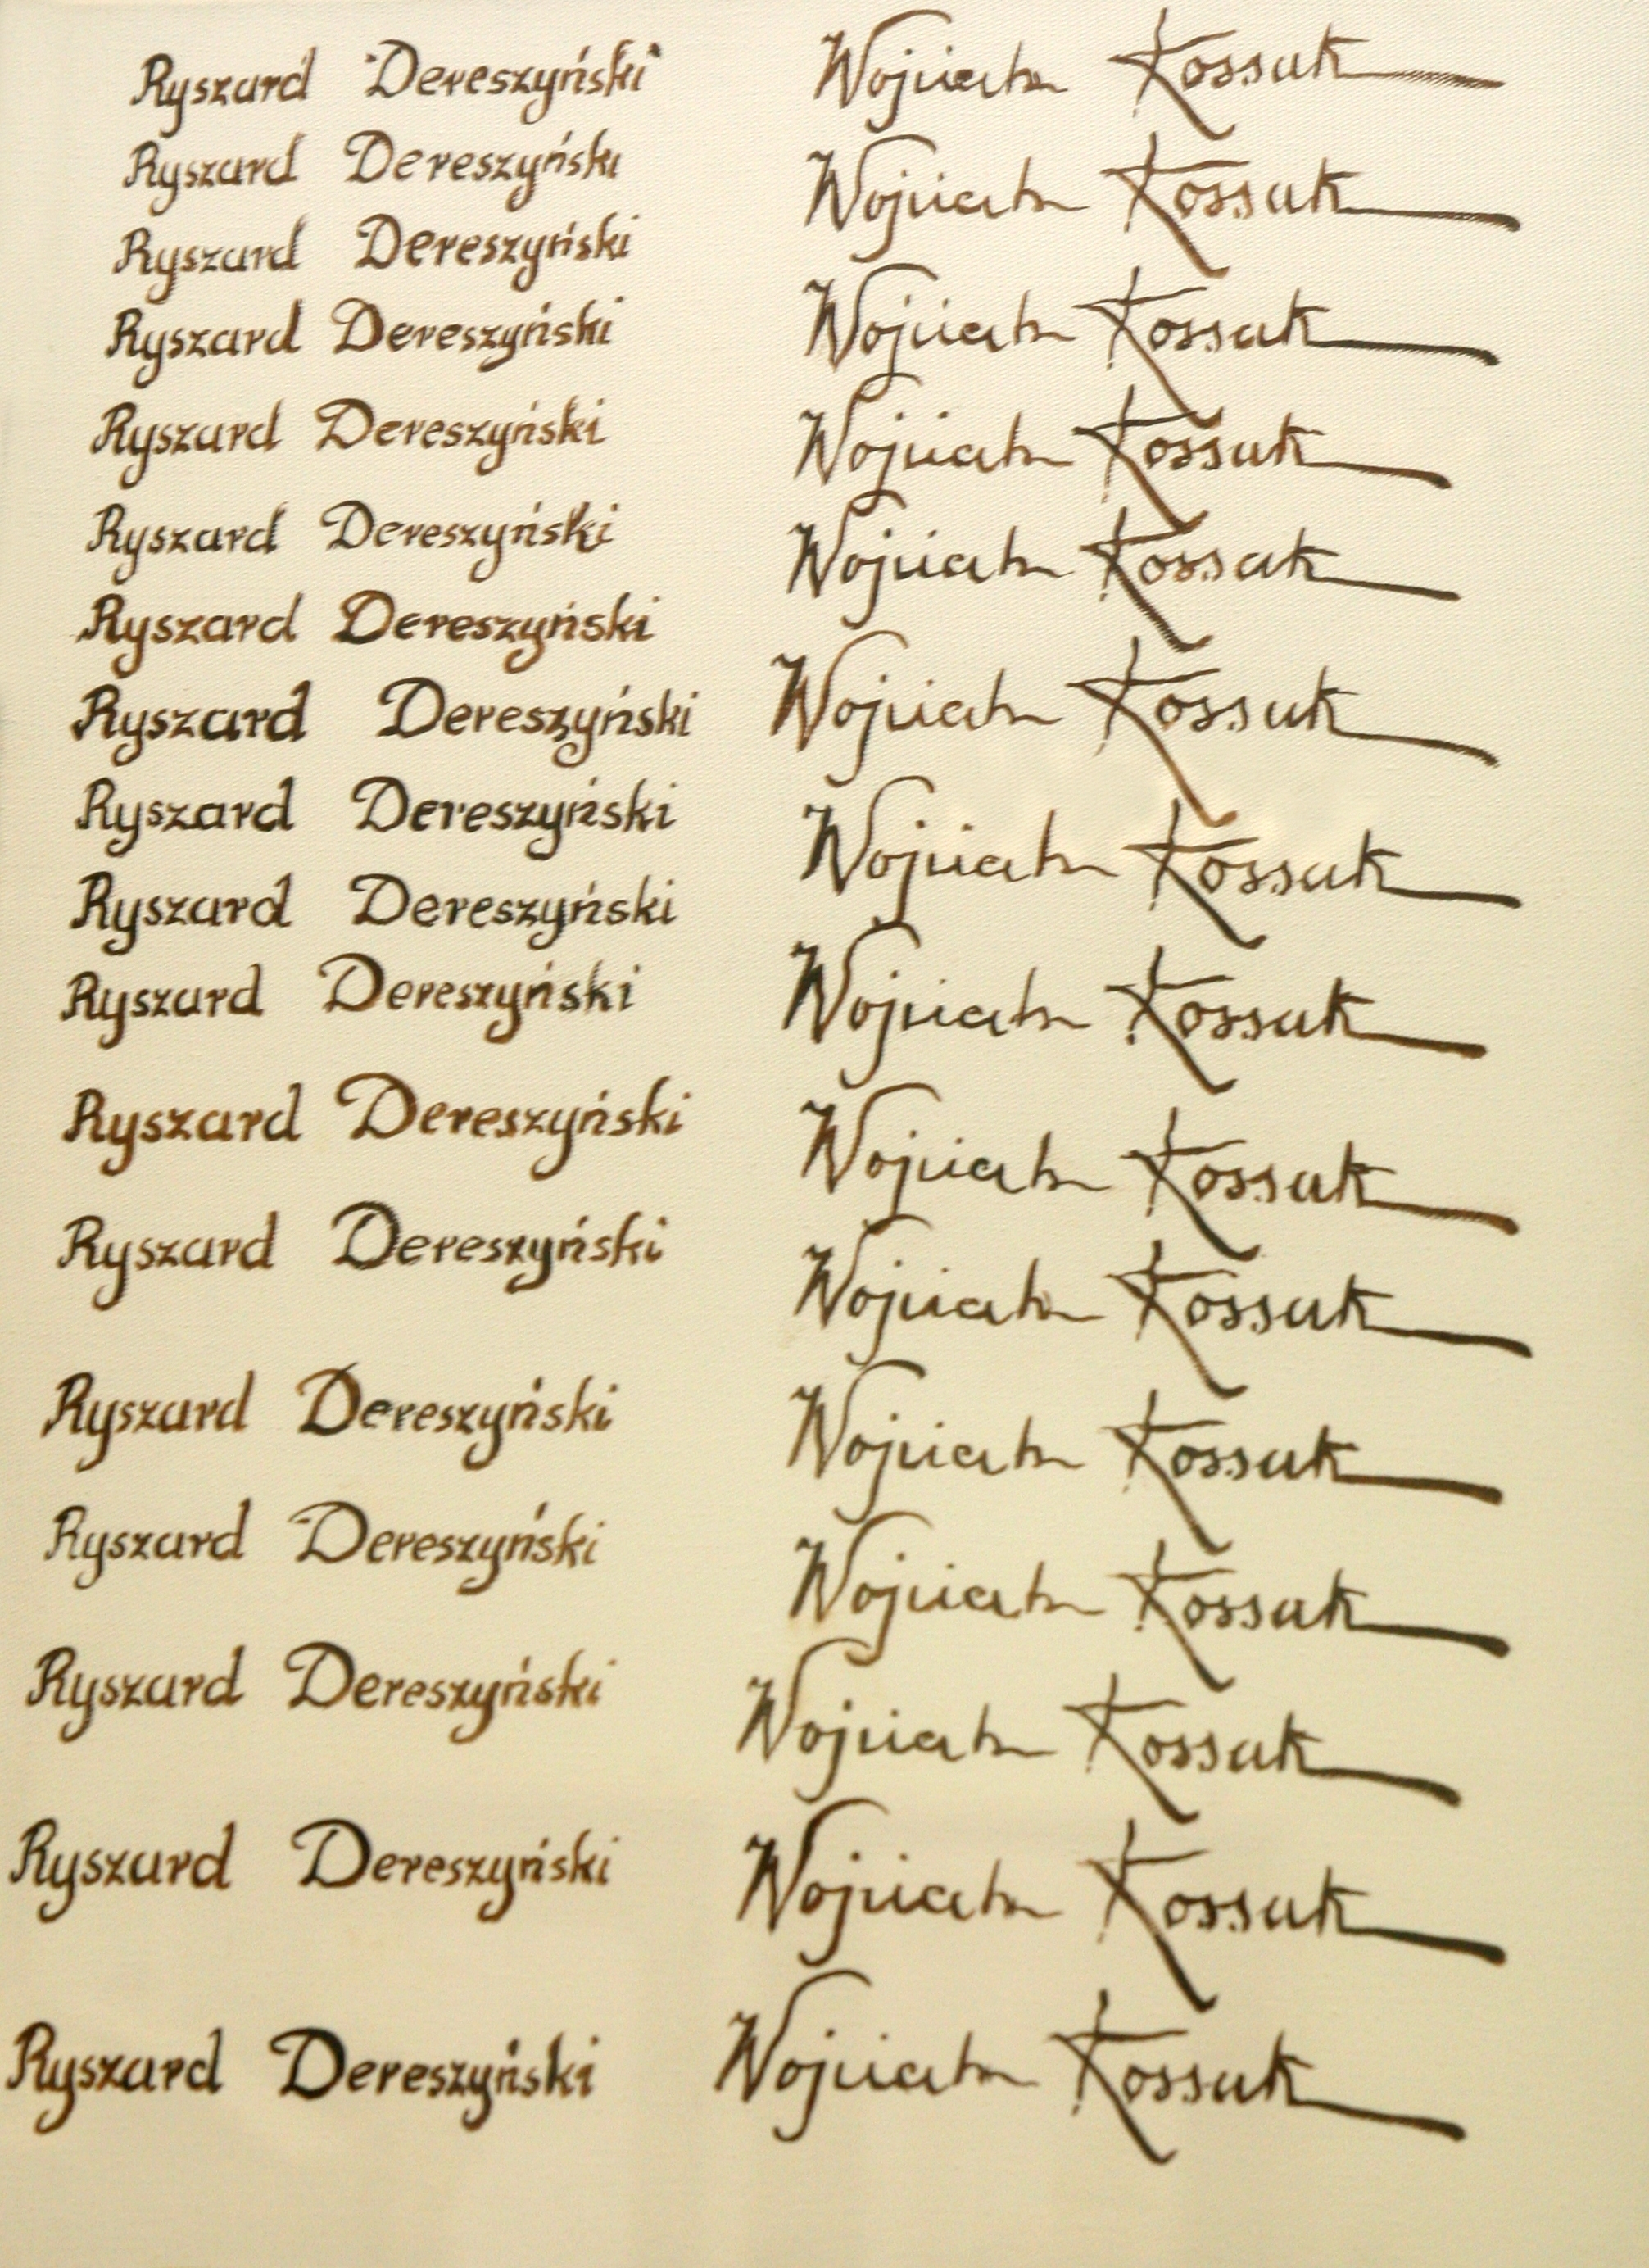 Ryszard Dereszyński
Ryszard Dereszyński
Ryszard Dereszyński
Ryszard Dereszyński
Ryszard Dereszyński
Ryszard Dereszyński
Ryszard Dereszyński
Ryszard Dereszyński
Ryszard Dereszyński
Ryszard Dereszyński
Ryszard Dereszyński
Ryszard Dereszyński
Ryszard Dereszyński
Ryszard Dereszyński
Ryszard Dereszyński
Ryszard Dereszyński
Ryszard Dereszyński
Ryszard Dereszyński
Wojciech Kossak
Wojciech Kossak
Wojciech Kossak
Wojciech Kossak
Wojciech Kossak
Wojciech Kossak
Wojciech Kossak
Wojciech Kossak
Wojciech Kossak
Wojciech Kossak
Wojciech Kossak
Wojciech Kossak
Wojciech Kossak
Wojciech Kossak
Wojciech Kossak